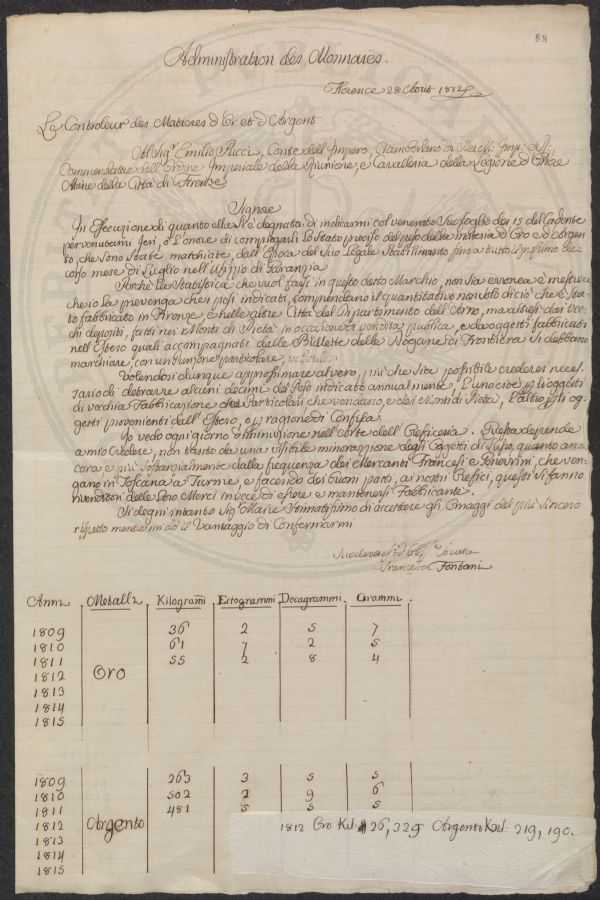 88
Administration des Monnaies.
Florence 28 Aout 1812
Le Controleur des Matieres d'Or et d'Argent
Al Sig.r Emilio Pucci, Conte dell'Impero, Ciamberlano di Imp:
Commendatore dell'Ordine Imperiale della Riunione, e Cavalleria della Legione d'Onore
Maire della Città di Firenze
Signore
In Esecuzione di quanto ella si è degnata di indicarmi col venerato Suo foglio dei 15 del Cadente
pervenutomi Jeri, ò L'onore di compiegarli Lo Stato preciso del peso delle materie d'Oro e d'Argen-
to, che sono State marchiate, dall'Epoca del Suo Legale Stabilimento fino a tutto il prossimo de-
corso mese di Luglio nell'Uffizio di Garanzia
Perchè La Statistica che vuol farsi in questo dotto Marchio, non sia erronea è mestiere
che io La prevenga che i pesi indicati, comprendano il quantitativo non solo di ciò che è sta-
to fabbricato in Firenze, e nelle altre Città del Dipartimento dell'Arno, ma altresì dai vec-
chi depositi, fatti nei Monti di Pietà in occasione di vendita publica, e da oggetti fabbricati
nell'Estero quali accompagnati dalle Bullette delle Dogane di Frontiera si debbano
marchiare, con un Punzone particolare,
Volendosi dunque approssimare al vero, più che sia possibile crederei neces-
sario di detrarre alcuni decimi del Peso indicato annualmente, L'uno cioè p gli oggetti
di vecchia Fabbricazione che i Particolari che vendano, e dei Monti di Pietà, L'altro p gli og-
getti provenienti dall'Estero, o p ragione di Confisca.
Io vedo ogni giorno diminuzione nell'Arte dell'Oreficeria. Questa depende
a mio Credere, non tanto da una visibile minorazione degli Oggetti di Lusso, quanto an-
cora e più sostanzialmente dalla frequenza dei Mercanti Francesi e Genevrini, che ven-
gano in Toscana a Turme, e facendo dei buoni patti, ai nostri Orefici, questi si fanno
rivenditori delle Loro Merci invece di essere e mantenersi Fabbricanti.
Si degni intanto Sig.r Maire Stimatissimo di accettare gli Omaggi del più sincero
rispetto mentre mi dò il Vantaggio di Confermarmi
Francesco Fontani
Anni Metalli Kilogrami Ectogrammi Decagrammi. Grammi.
1809 36 2 5 7
1810 61 7 2 5
1811 55 2 8 4
1812 Oro
1813
1814
1815
1809 263 3 5 5
1810 502 2 9 6
1811 481 5 5 5
1812 Argento
1813
1814
1815
1812 Oro Kil: 26,329 Argento Kil: 219,190.